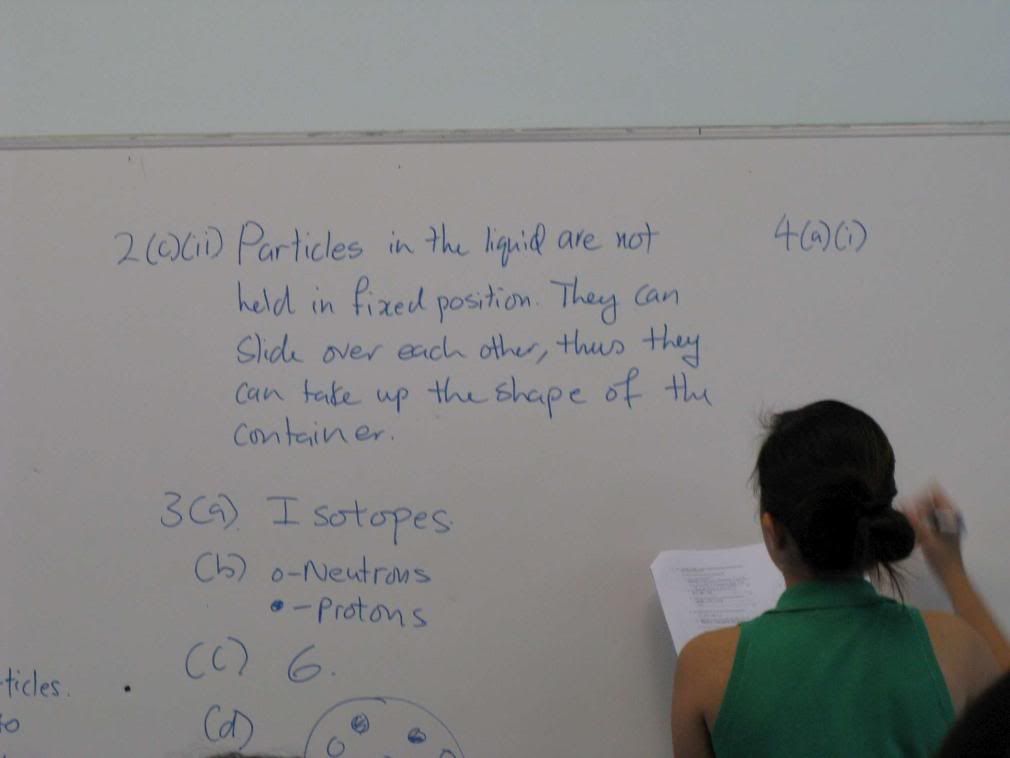 2(c)(ii) Particles in the liquid are not
held in fixed position. They can
slide over each other, thus they
can take up the shape of the
container.
3(a). Isotopes.
(b) o-Neutrons
•-Protons
(c) 6.
(d)
ticles.
4(a)(i)